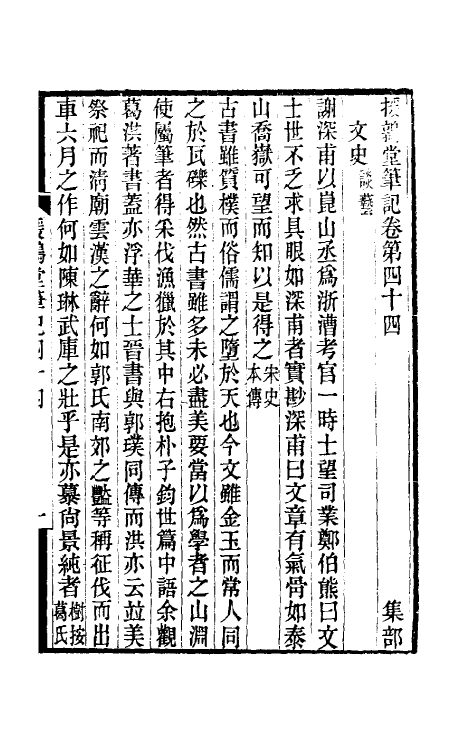 援鶉堂筆記卷第四十四 集部
文史談藝
謝深甫以崑山丞爲浙漕考官一時士望司業鄭伯熊曰文
士世不乏求具眼如深甫者實尠深甫曰文章有氣骨如泰
山喬嶽可望而知以是得之宋史本傳
古書雖質樸而俗儒謂之墮於天也今文雖金玉而常人同
之於瓦礫也然古書雖多未必盡美要當以爲學者之山淵
使屬筆者得采伐漁獵於其中右抱朴子鈞世篇中語余觀
葛洪著書蓋亦浮華之士晉書與郭璞同傳而洪亦云竝美
祭祀而清廟雲漢之辭何如郭氏南郊之豔等稱征伐而出
車六月之作何如陳琳武庫之壯乎是亦慕尙景純者樹按葛氏
援鶉堂筆記四十四 一